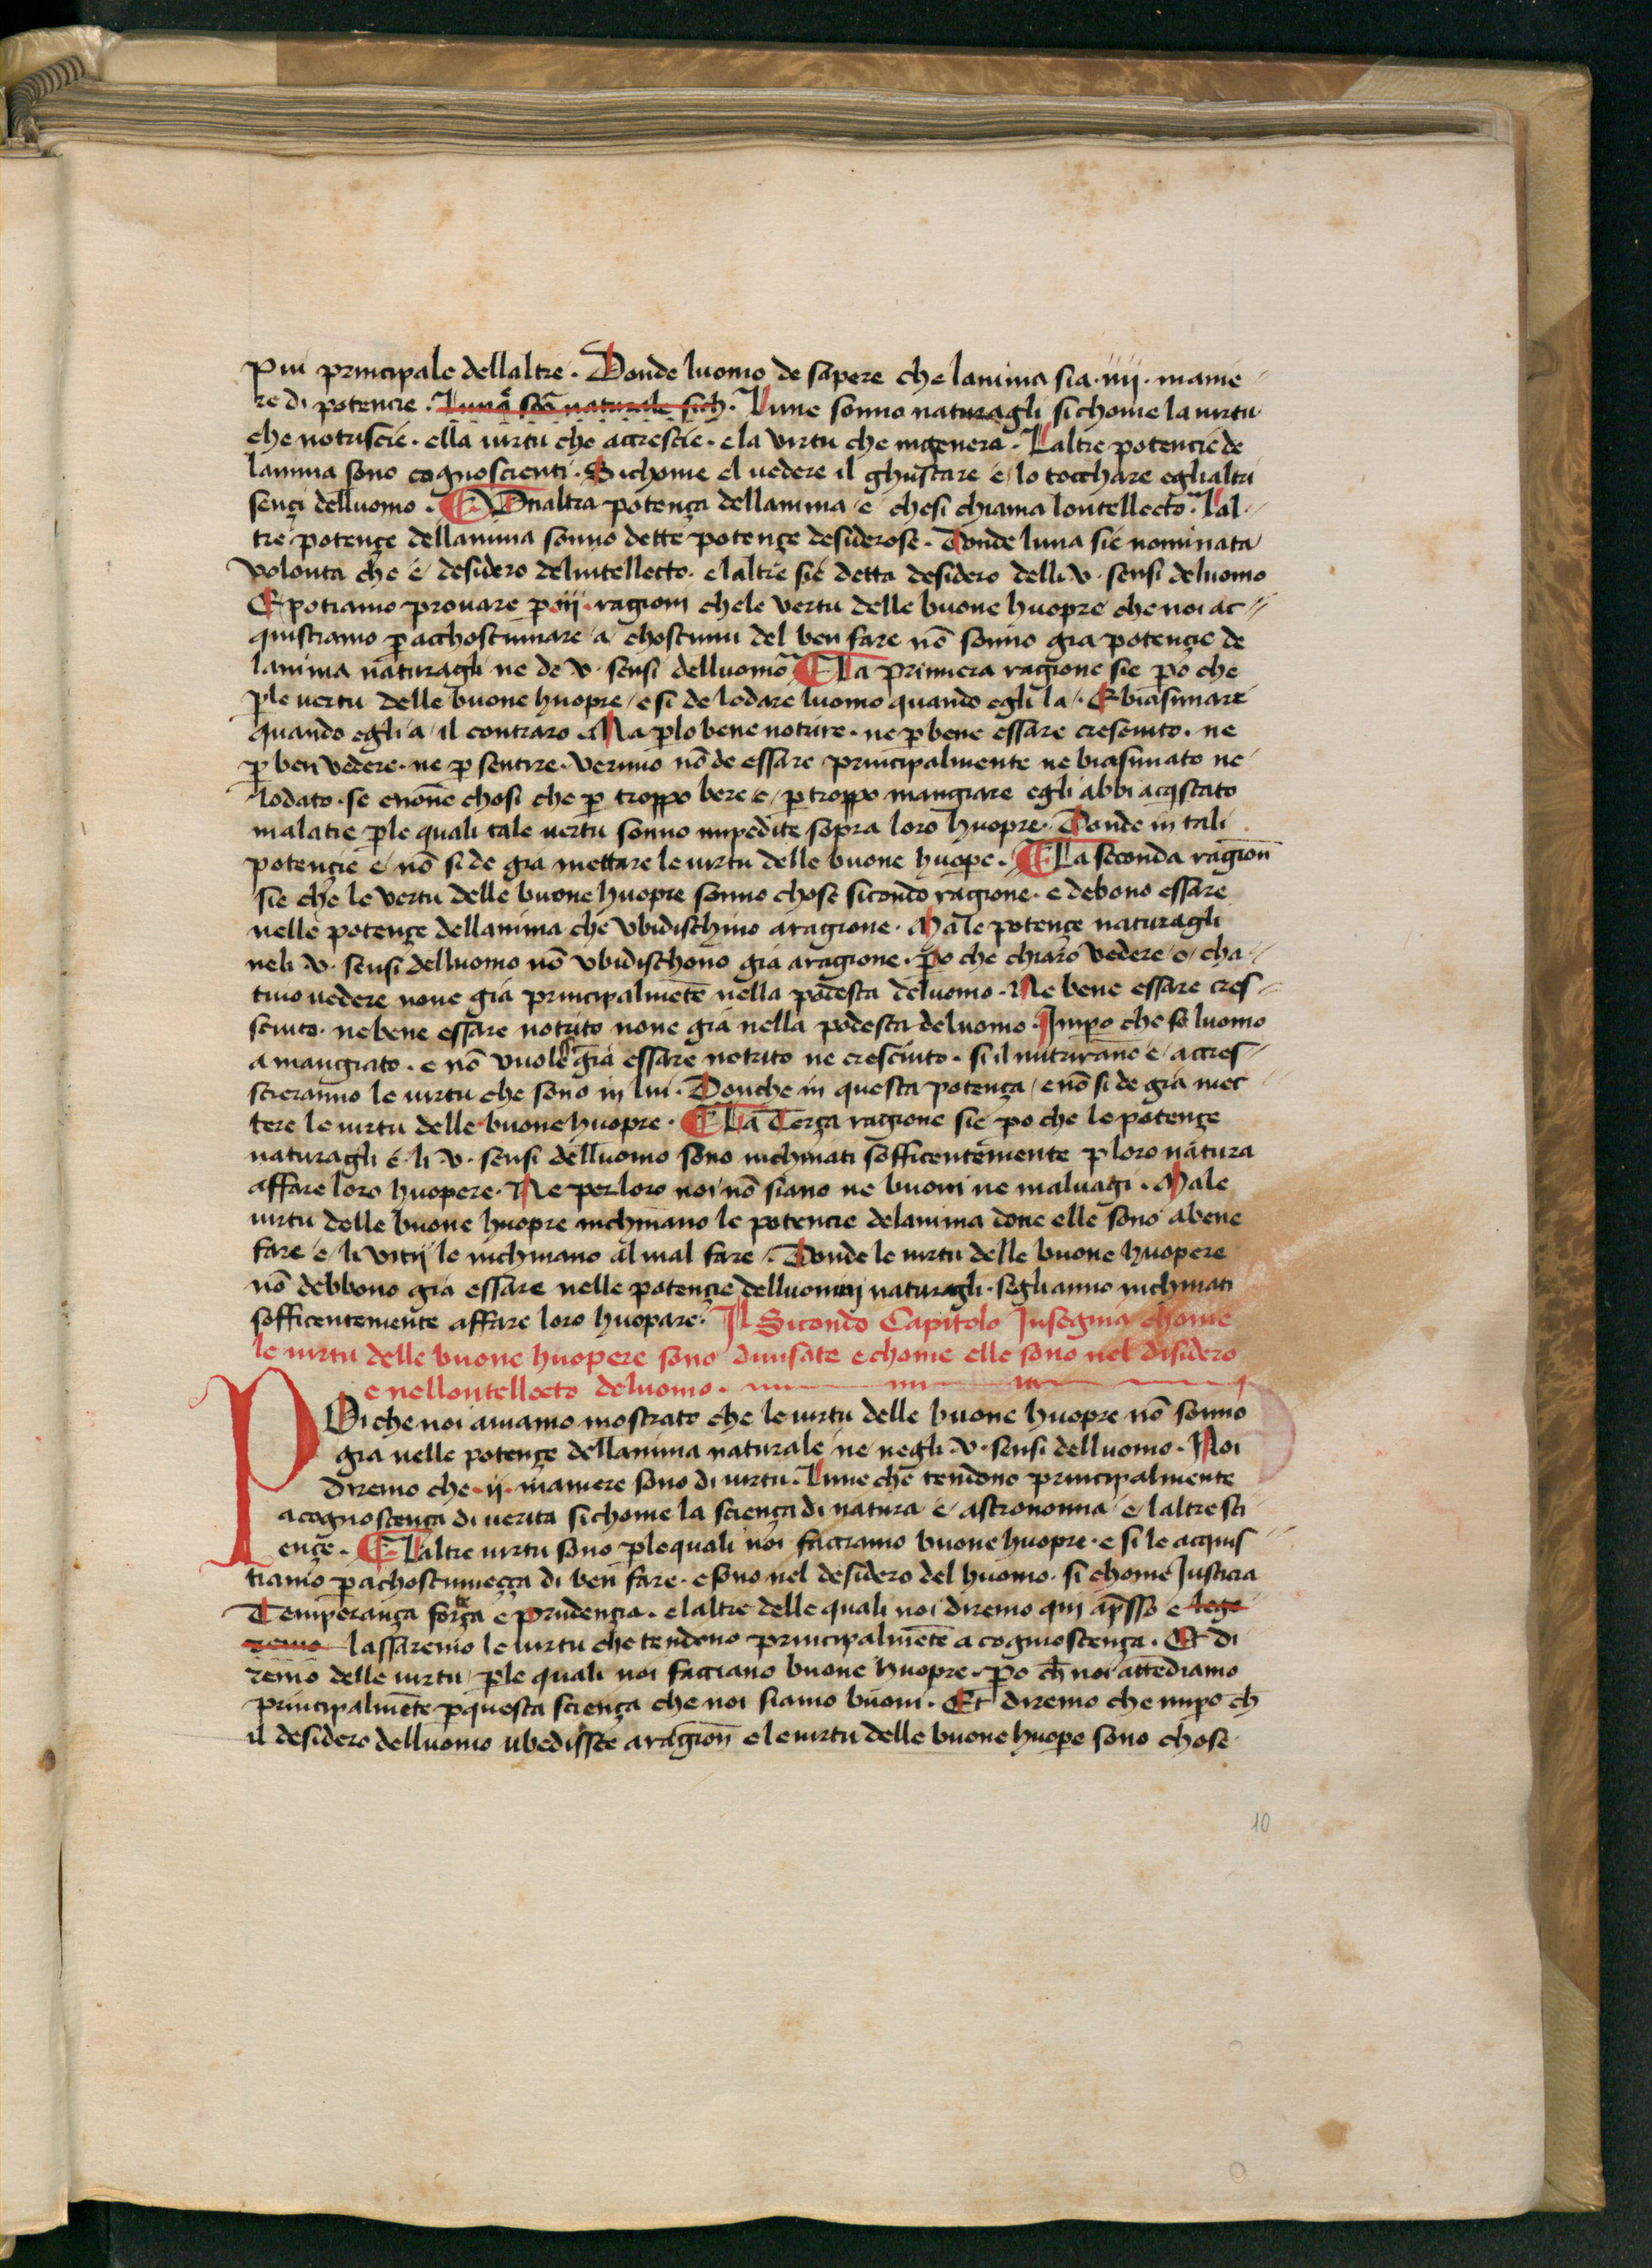 piu principale dellaltre. Donde luomo de sapere che lanima sia .iiij. manie
re di potencie. Luna son naturale sich. Lune sonno naturagli sichome la uirtu
che notriscie. ella uirtu che accrescie. e la virtu che ingenera. Laltre potencie de
lanima sono cognoscienti. Sichome el uedere il ghustare e/ lo tocchare eglialtri
sençi delluomo. E Unaltra potença dellanima e chesi chiama lontellecto. Lal
tre potençe dellanima sonno dette potençe desiderose. Donde luna sie nominata
volonta che e/ desidero delintellecto. elaltre sie detta desidero delli .v. sensi deluomo
E potiamo prouare p iij. ragioni chele vertu delle buone huopre che noi ac
quistiamo p acchostumare a chostumi del ben fare nō sonno gia potençie de
lanima naturagli ne de .v. sensi delluomo. La primiera ragione sie po che
ple uertu delle buone huopre/ e si de lodare luomo quando egli la. E biasimare
quando egli a/ il contraro. Ma plo bene notrire. ne p bene essare cresciuto. ne
p ben vedere. ne p sentire. veruno nō de essare principalmente ne biasimato ne
lodato. se enone chosi che p troppo bere e/ p troppo mangiare egli abbi acqstato
malatie ple quali tale uertu sonno impedite sopra loro huopre. Donde in tali
potençie e/ nō si de gia mettare le uirtu delle buone huope. La seconda ragion̄
sie che le vertu delle buone huopre sonno chose sicondo ragione. e debono essare
nelle potençe dellanima che vbidischino aragione. Ma le potençe naturagli
neli .v. sensi delluomo nō vbidischono gia aragione. po che chiaro vedere/ o/ cha
tiuo uedere none gia principalmēte nella podesta deluomo. Ne bene essare cres
sciuto. nebene essare notrito none gia nella podesta deluomo. Impo che se luomo
a mangiato. e nō vuole gia essare notrito ne cresciuto. si il nutriranno e/ accres
scieranno le uirtu che sono in lui. Donche in questa potença/ e nō si de gia met
tere le uirtu delle buone huopre. La Terça ragione sie po che le potençe
naturagli e li .v. sensi delluomo sono inchinati sofficentemente p loro natura
affare loro huopere. Ne per loro noi nō siano ne buoni ne maluagi. Ma le
uirtu delle buone huopre inchinano le potencie delanima doue elle sono abene
fare e/ li vitij le inchinano al mal fare. Donde le uirtu delle buone huopere
nō debbono gia essare nelle potençie delluomini naturagli. segli anno inchinati
sofficentemente affare loro huopare. Il Sicondo Capitolo Insegnia chome
le uirtu delle buone huopere sono diuisate e chome elle sono nel disidero
e nellontellecto deluomo.
POi che noi auiamo mostrato che le uirtu delle buone huopre nō sonno
gia nelle potençe dellanima naturale ne negli .v. sensi delluomo. Noi
diremo che .ij. maniere sono di uirtu. Lune che tendono principalmente
a cognoscença di uerita sichome la sciença di natura e/ astronomia e/ laltre sci
ençe. Laltre uirtu sono plequali noi facciamo buone huopre. e si le acquis
tiamo p achostumeçça di ben fare. e sono nel desidero del huomo. si chome Iusticia
Temperança força e prudençia. elaltre delle quali noi diremo qui apsso e lege
remo lassaremo le uirtu che tendono principalmēte a cognioscença. Et di
remo delle uirtu/ ple quali noi facciano buone huopre. po ch̄ noi attēdiamo
principalmēte p questa sciença che noi siamo buoni. Et diremo che impo ch̄
il desidero delluomo ubedissce aragion̄ e le uirtu delle buone huope sono chose
10